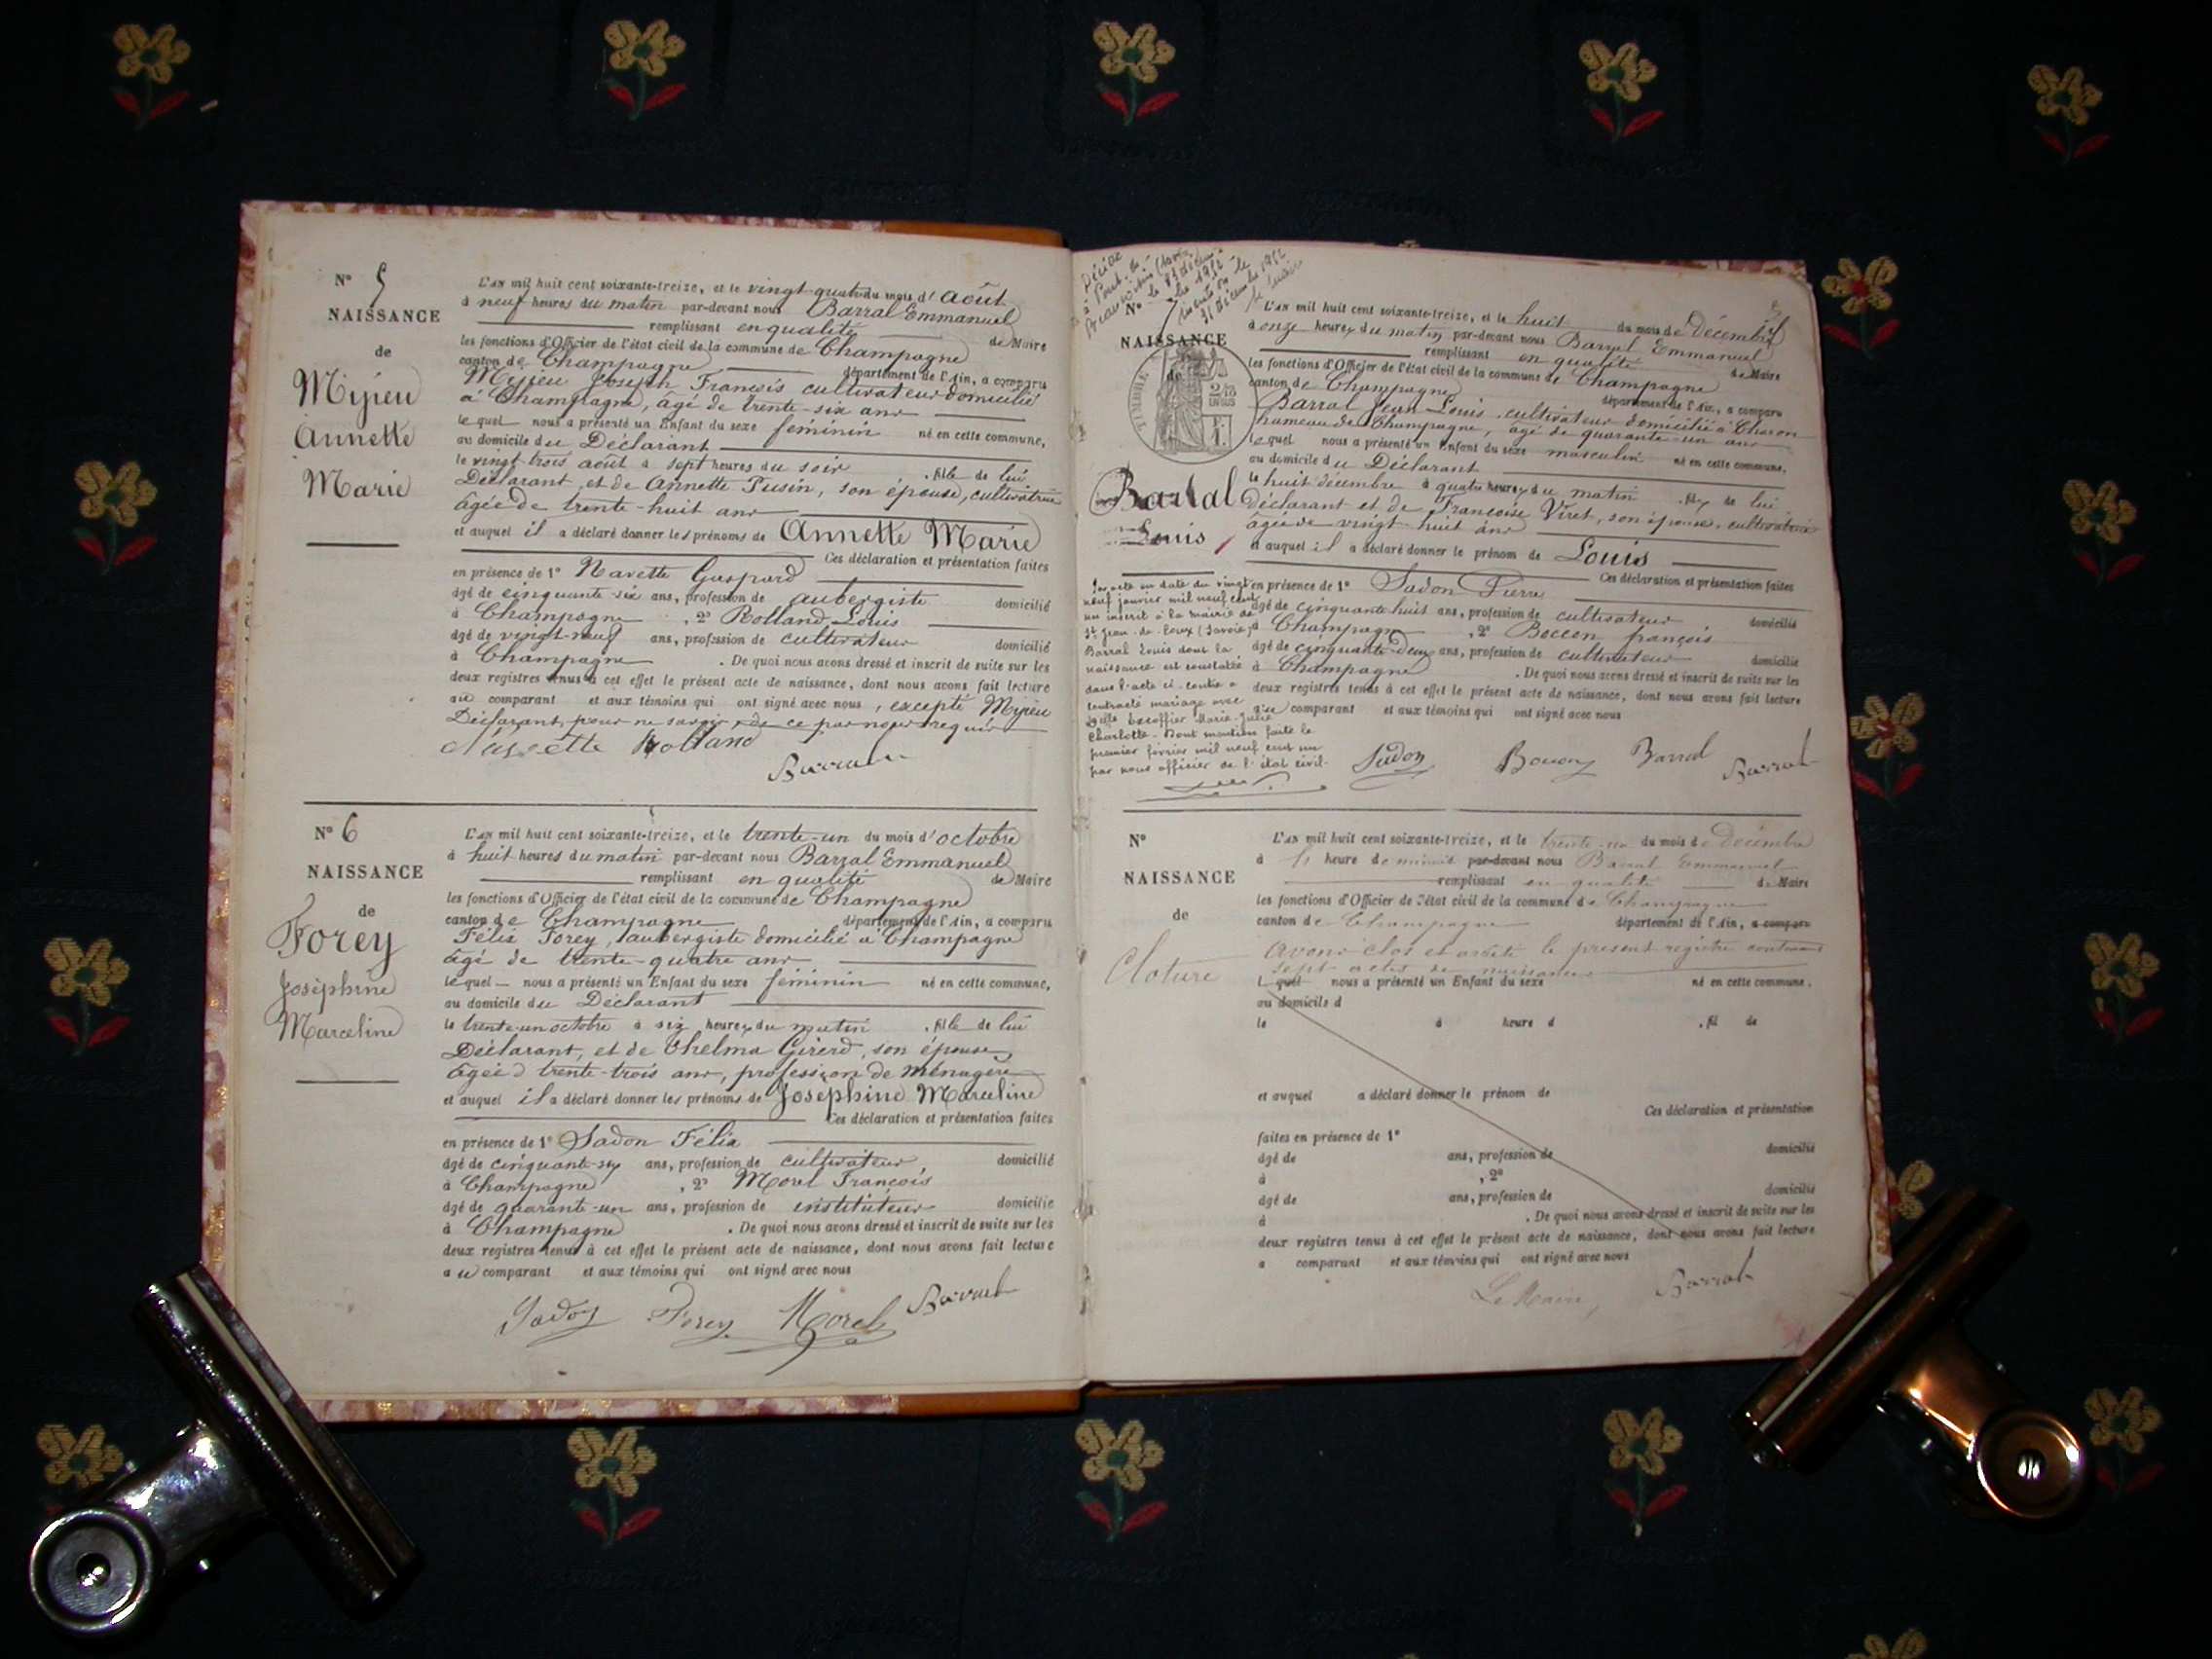 N° 5
NAISSANCE
de
Mijieu
Annette
Marie
L'an mil huit cent soixante-treize, et le vingt-quatre du mois d'août
à neuf heures du matin par-devant nous Barral Emmanuel
remplissant en qualité de Maire
les fonctions d'Officier de l'état civil de la commune de Champagne
canton de Champagne département de l'Ain, a comparu
Mijieu Joseph François cultivateur domicilié
à Champagne, âgé de trente-six ans
lequel nous a présenté un Enfant du sexe féminin né en cette commune,
au domicile du Déclarant
le vingt-trois août à sept heures du soir, fille de lui
Déclarant, et de Annette Pusin, son épouse, cultivatrice
âgée de trente-huit ans
et auquel il a déclaré donner les prénoms de Annette Marie
Ces déclaration et présentation faites
en présence de 1° Navette Gaspard
âgé de cinquante-six ans, profession de aubergiste domicilié
à Champagne, 2° Rolland Louis
âgé de vingt-neuf ans, profession de cultivateur domicilié
à Champagne. De quoi nous avons dressé et inscrit de suite sur les
deux registres tenus à cet effet le présent acte de naissance, dont nous avons fait lecture
au comparant et aux témoins qui ont signé avec nous, excepté Mijieu
Déclarant, pour ne savoir, de ce par nous requis
Navette Rolland
Barral
N° 6
NAISSANCE
de
Forey
Joséphine
Marceline
L'an mil huit cent soixante-treize, et le trente-un du mois d'octobre
à huit heures du matin par-devant nous Barral Emmanuel
remplissant en qualité de Maire
les fonctions d'Officier de l'état civil de la commune de Champagne
canton de Champagne département de l'Ain, a comparu
Félix Forey, aubergiste domicilié à Champagne
âgé de trente-quatre ans
lequel nous a présenté un Enfant du sexe féminin né en cette commune,
au domicile du Déclarant
le trente-un octobre à six heures du matin, fille de lui
Déclarant, et de Thelma Girerd, son épouse,
âgée d trente-trois ans, profession de ménagère
et auquel il a déclaré donner les prénoms de Joséphine Marceline
Ces déclaration et présentation faites
en présence de 1° Sadon Félix
âgé de cinquante-six ans, profession de cultivateur domicilié
à Champagne, 2° Morel François
âgé de quarante-un ans, profession de instituteur domicilié
à Champagne. De quoi nous avons dressé et inscrit de suite sur les
deux registres tenus à cet effet le présent acte de naissance, dont nous avons fait lecture
au comparant et aux témoins qui ont signé avec nous
Sadon Forey Morel Barral
Décédé
à Pont-de-
le 23 décem-
bre 1952
31 décembre 1952
N° 7
NAISSANCE
de
TIMBRE
Barral
Louis
L'an mil huit cent soixante-treize, et le huit du mois de décembre
à onze heures du matin par-devant nous Barral Emmanuel
remplissant en qualité de Maire
les fonctions d'Officier de l'état civil de la commune de Champagne
canton de Champagne département de l'Ain, a comparu
Barral Jean-Louis, cultivateur domicilié à Charon
hameau de Champagne, âgé de quarante-un ans
lequel nous a présenté un Enfant du sexe masculin né en cette commune,
au domicile du Déclarant
le huit décembre à quatre heures du matin, fils de lui
déclarant et de Françoise Viret, son épouse, cultivatrice
âgée de vingt-huit ans
et auquel il a déclaré donner le prénom de Louis
Ces déclaration et présentation faites
en présence de 1° Sadon Pierre
âgé de cinquante-huit ans, profession de cultivateur domicilié
à Champagne, 2° Boccon françois
âgé de cinquante-deux ans, profession de cultivateur domicilié
à Champagne. De quoi nous avons dressé et inscrit de suite sur les
deux registres tenus à cet effet le présent acte de naissance, dont nous avons fait lecture
comparant et aux témoins qui ont signé avec nous
Par acte en date du vingt
neuf janvier mil neuf cent
un inscrit à la mairie de
St Jean-de-Coux (Savoie)
Barral Louis dont la
naissance est constatée
dans l'acte ci-contre a
contracté mariage avec
Delle Escoffier Marie-Julie
Charlotte. Dont mention faite le
premier février mil neuf cent un
par nous officier de l'état civil.
Sadon Boccon Barral Barral
N°
NAISSANCE
de
Cloture
L'an mil huit cent soixante-treize, et le trente-un du mois de Décembre
à heure de minuit par-devant nous Barral Emmanuel
remplissant en qualité de Maire
les fonctions d'Officier de l'état civil de la commune de Champagne
canton de Champagne département de l'Ain, a comparu
avons clos et arrêté le présent registre contenant
sept actes de naissances
lequel nous a présenté un Enfant du sexe né en cette commune,
au domicile d
le à heure d, fil de
et auquel a déclaré donner le prénom de
Ces déclaration et présentation
faites en présence de 1°
âgé de ans, profession de domicilié
à, 2°
âgé de ans, profession de domicilié
à. De quoi nous avons dressé et inscrit de suite sur les
deux registres tenus à cet effet le présent acte de naissance, dont nous avons fait lecture
a comparant et aux témoins qui ont signé avec nous
Le Maire, Barral